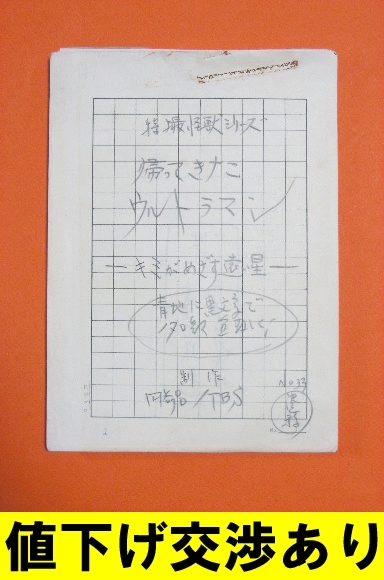 特撮怪獣シリーズ
帰ってきた
ウルトラマン
ーキミがめざす遠い星ー
青地に黒文字で
制作
円谷プロ/TBS
No 33
値下げ交渉あり